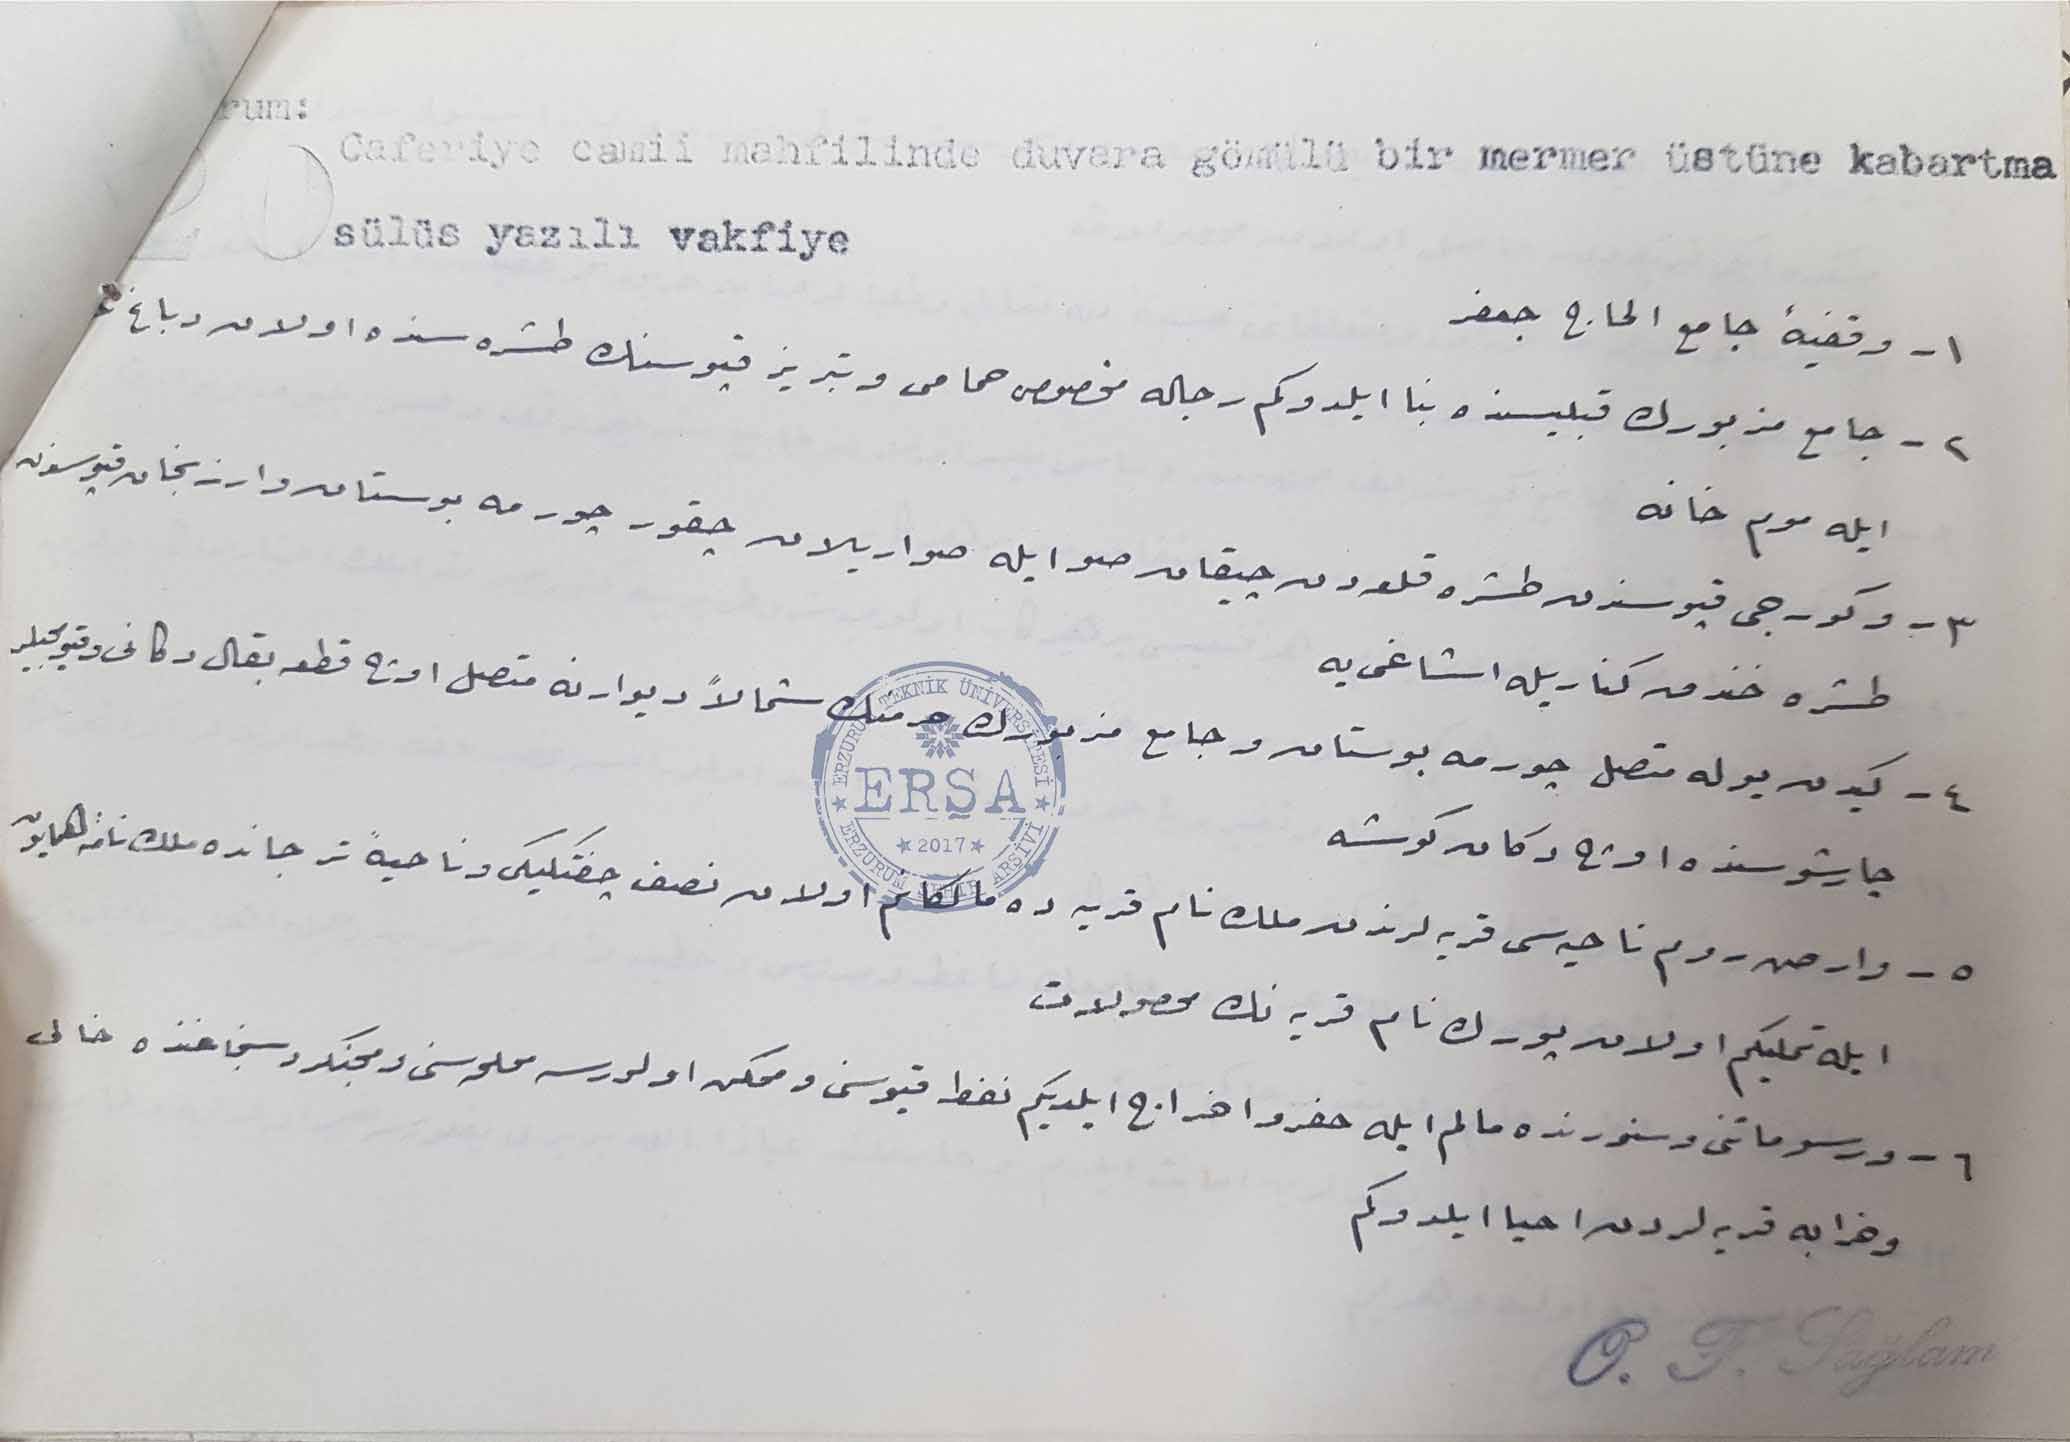 rum:
20
Caferiye camii mahfilinde duvara gömülü bir mermer üstüne kabartma
sülüs yazılı vakfiye
١- وقفیهٔ جامع الحاج جعفر
٢- جامع مزبورك قبلیسنده بنا ایلدوكم رجاله مخصوص حمامی و تبریز قپوسنك طشره سنده اولان دباغ
ایله موم خانه
٣- و كورجی قپوسندن طشره قلعه دن چیقان صو ایله صواریلان چقور چورمه بوستان و ارزنجان قپوسندن
طشره خندق كناریله اشاغی یه
٤- كیدن یوله متصل چورمه بوستان و جامع مزبورك حرمنك شمالاً دیوارنه متصل اوچ قطعه بقال دكانی و قیومجیلر
چارشوسنده اوچ دكان كوشه
٥- وارض روم ناحیه سی قریه لرندن ملك نام قریه ده مالكانم اولان نصف چفتلیكی و ناحیهٔ ترجانده ملك نامهٔ همایون
ایله تملیكم اولان پورك نام قریه نك محصولات
٦- ورسوماتنی و سنورنده مالم ایله حفر و اخراج ایلدیكم نفط قپوسنی و ممكن اولورسه مملحه سنی و مجنكرد سنجاغنده خالی
و خرابه قریه لردن احیا ایلدوكم
ERZURUM TEKNİK ÜNİVERSİTESİ
ERŞA
★ 2017 ★
ERZURUM ŞEHİR ARŞİVİ
O. F. Sağlam